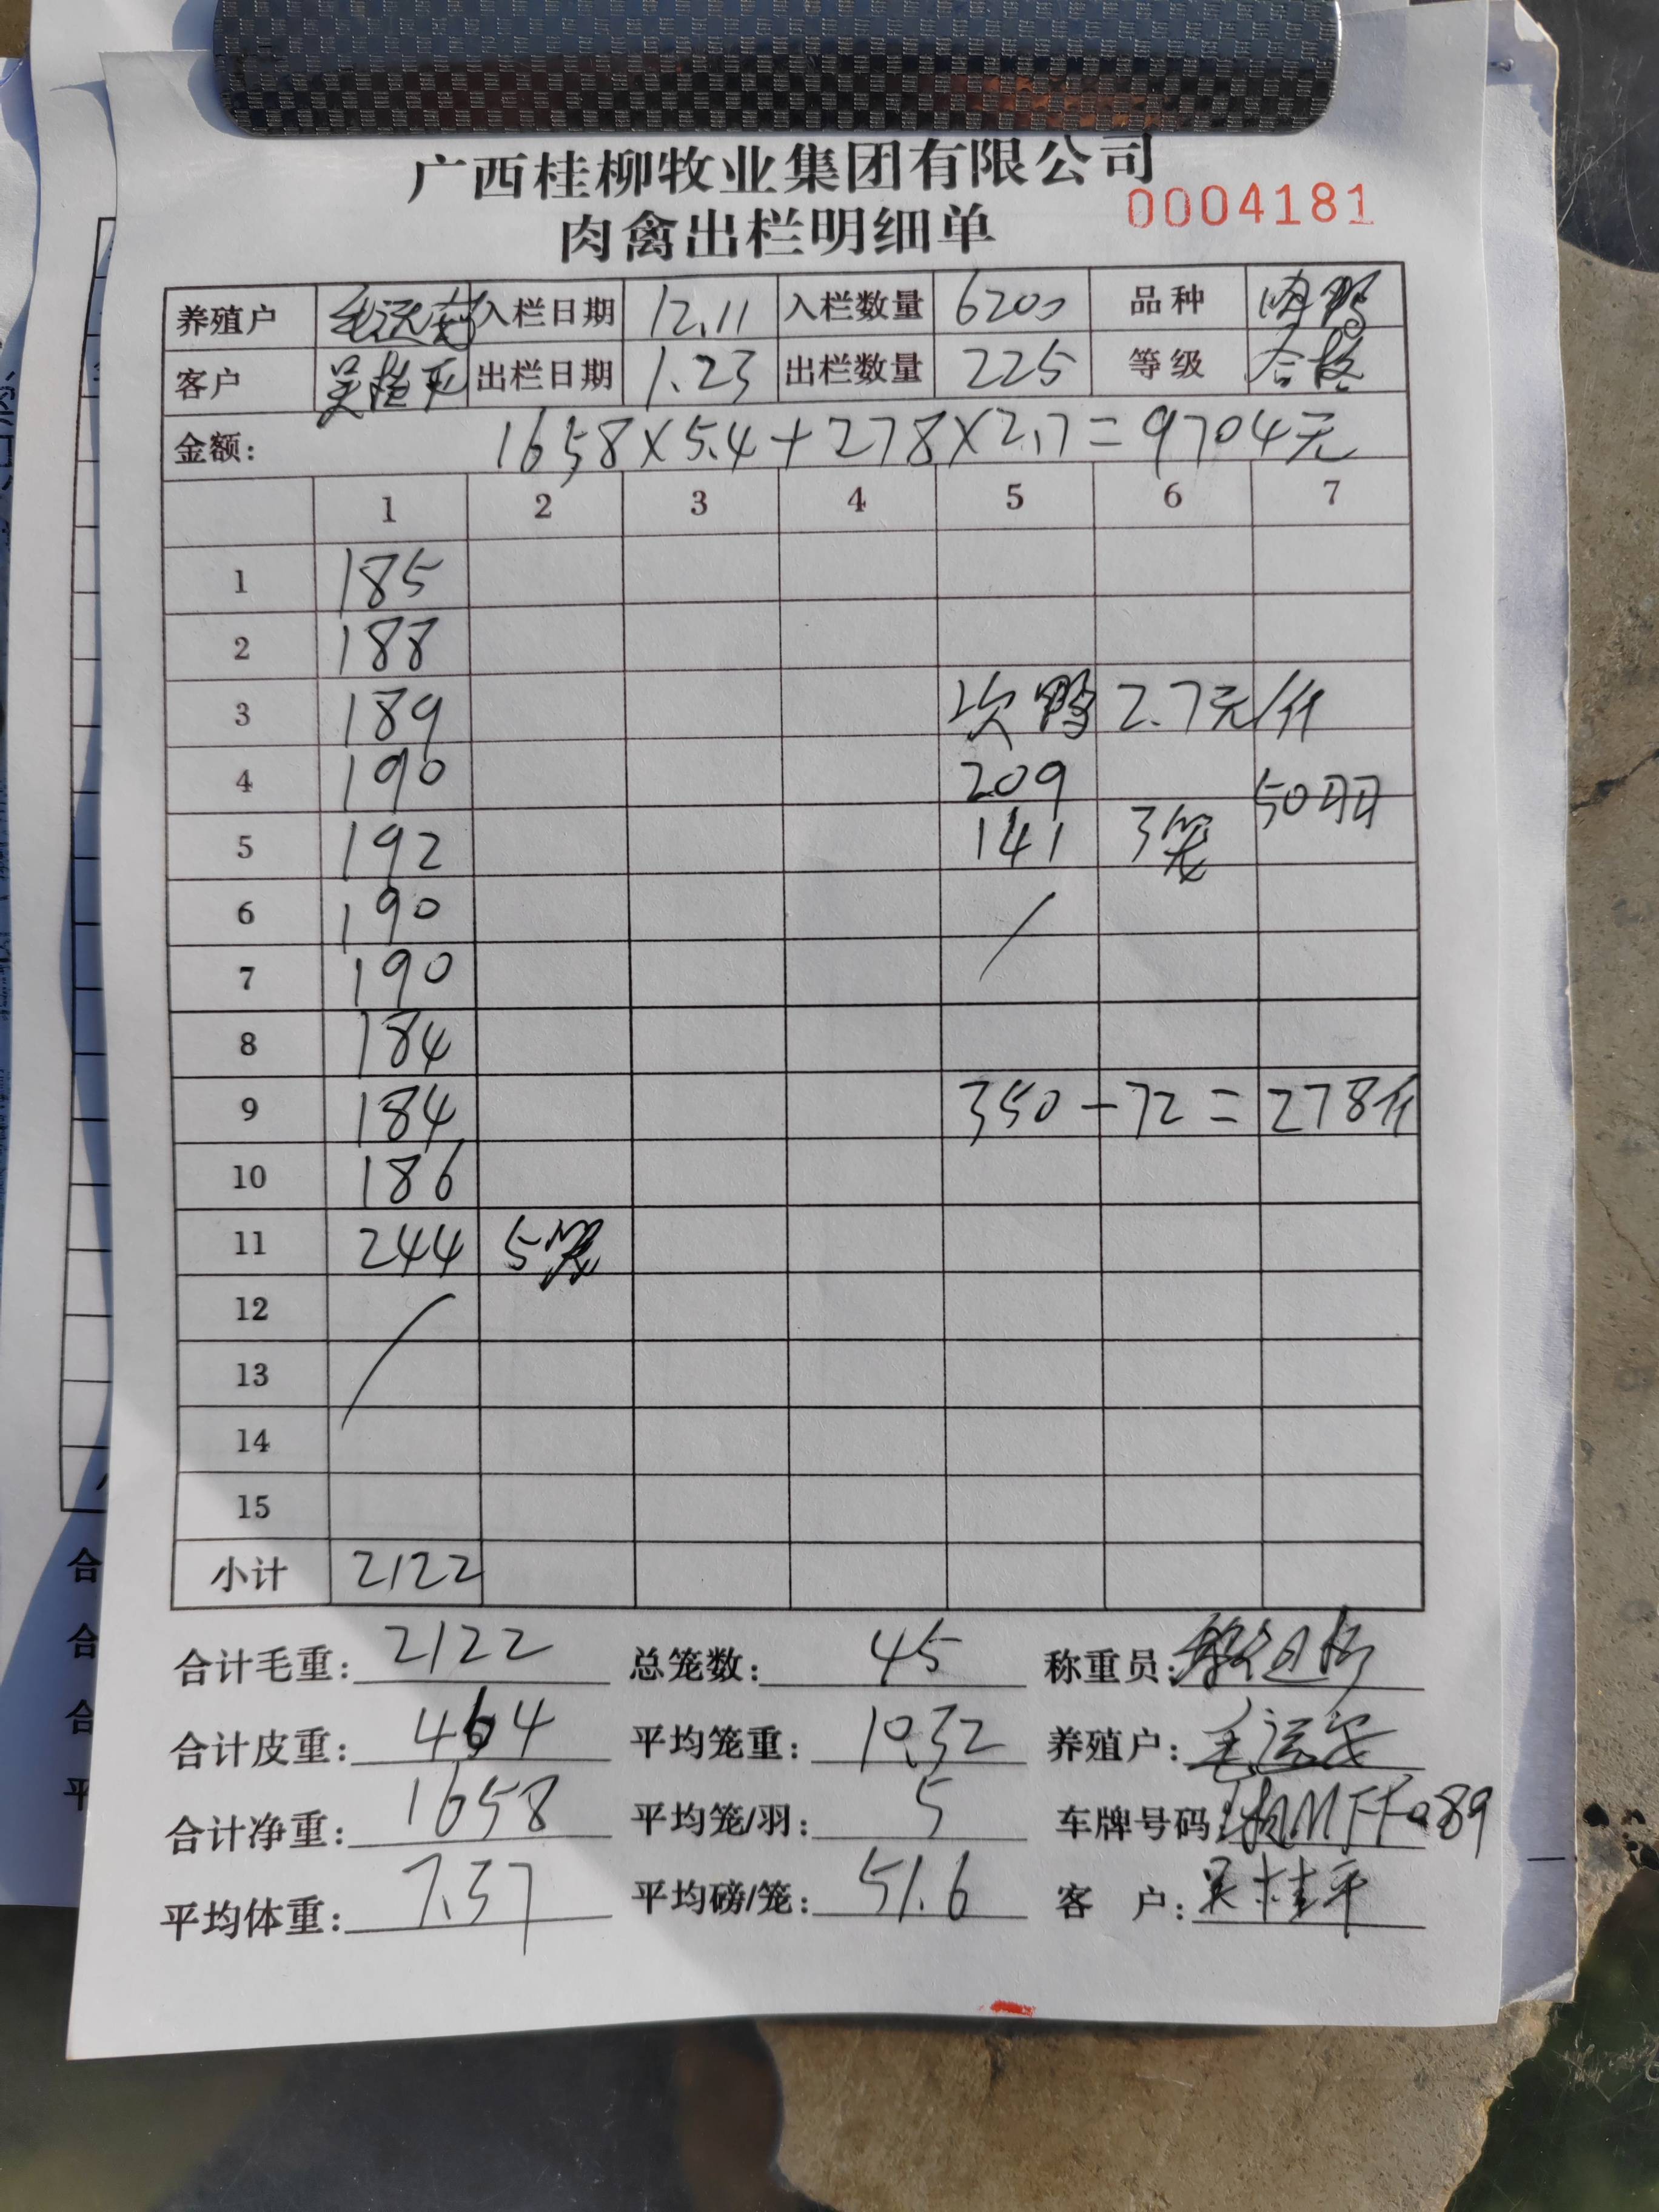 广西桂柳牧业集团有限公司
0004181
肉禽出栏明细单
养殖户 毛运安 入栏日期 12.11 入栏数量 6200 品种 肉鸭
客户 吴桂平 出栏日期 1.23 出栏数量 225 等级 合格
金额: 1658×5.4+278×2.7=9704元
1 2 3 4 5 6 7
1 185
2 188
3 189 次鸭 2.7元/斤
4 190 209 50羽
5 192 141 3笼
6 190
7 190
8 184
9 184 350-72=278斤
10 186
11 244 5笼
12
13
14
15
小计 2122
合计毛重: 2122 总笼数: 45 称重员:
合计皮重: 464 平均笼重: 10.32 养殖户: 毛运安
合计净重: 1658 平均笼/羽: 5 车牌号码: MFF089
平均体重: 7.37 平均磅/笼: 51.6 客 户: 吴桂平